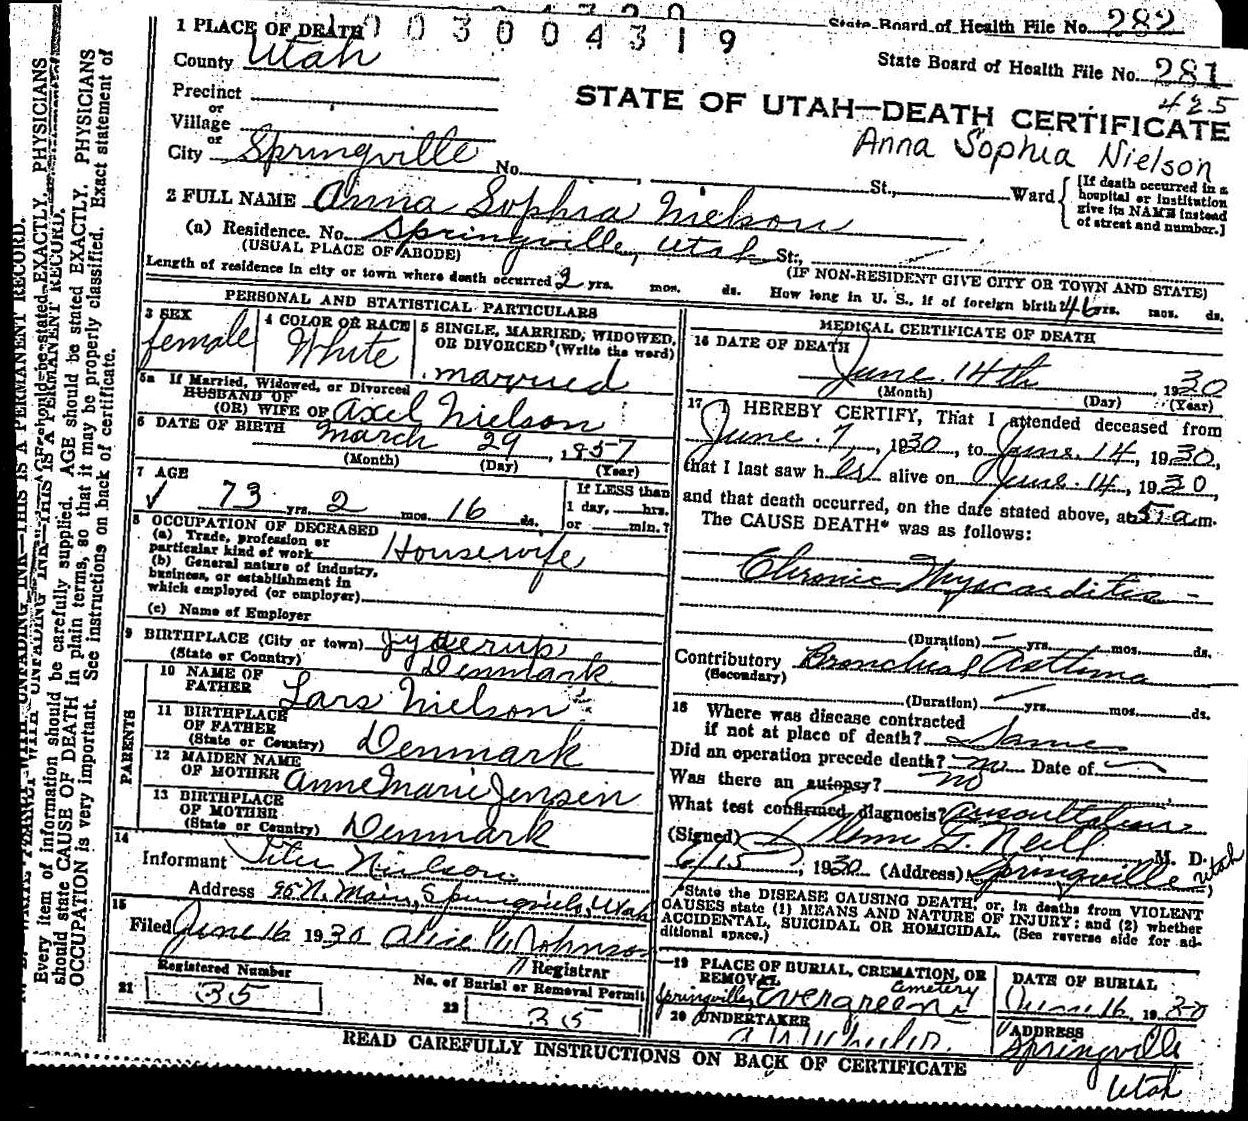 State Board of Health File No. 282
1 PLACE OF DEATH 003004319
State Board of Health File No. 281
County Utah
425
Precinct
STATE OF UTAH—DEATH CERTIFICATE
or
Village
Anna Sophia Nielson
or
City Springville No. St., Ward
[If death occurred in a
hospital or institution
give its NAME instead
of street and number.]
2 FULL NAME Anna Sophia Nielson
(a) Residence. No. Springville, Utah St.,
(USUAL PLACE OF ABODE)
(IF NON-RESIDENT GIVE CITY OR TOWN AND STATE)
Length of residence in city or town where death occurred 2 yrs. mos. ds. How long in U. S., if of foreign birth 46 yrs. mos. ds.
PERSONAL AND STATISTICAL PARTICULARS
3 SEX
female
4 COLOR OR RACE
White
5 SINGLE, MARRIED, WIDOWED,
OR DIVORCED (Write the word)
married
5a If Married, Widowed, or Divorced
HUSBAND OF
(OR) WIFE OF Axel Nielson
6 DATE OF BIRTH March 29, 1857
(Month) (Day) (Year)
7 AGE
73 yrs. 2 mos. 16 ds.
If LESS than
1 day, hrs.
or min.?
8 OCCUPATION OF DECEASED
(a) Trade, profession or
particular kind of work Housewife
(b) General nature of industry,
business, or establishment in
which employed (or employer)
(c) Name of Employer
9 BIRTHPLACE (City or town) Jyderup
(State or Country) Denmark
PARENTS
10 NAME OF
FATHER Lars Nielson
11 BIRTHPLACE
OF FATHER
(State or Country) Denmark
12 MAIDEN NAME
OF MOTHER Anne Marie Jensen
13 BIRTHPLACE
OF MOTHER
(State or Country) Denmark
14
Informant Nielson
Address 95 N. Main, Springville, Utah
15
Filed June 16 1930 Alice Johnson
Registrar
Registered Number
21 35
No. of Burial or Removal Permit
22 35
MEDICAL CERTIFICATE OF DEATH
16 DATE OF DEATH
June 14th 1930
(Month) (Day) (Year)
17 I HEREBY CERTIFY, That I attended deceased from
June 7, 1930, to June 14, 1930,
that I last saw her alive on June 14, 1930
and that death occurred, on the date stated above, at 5 a m.
The CAUSE DEATH* was as follows:
Chronic Myocarditis
(Duration) yrs. mos. ds.
Contributory Bronchial Asthma
(Secondary)
(Duration) yrs. mos. ds.
18 Where was disease contracted
if not at place of death? Same
Did an operation precede death? no Date of
Was there an autopsy? no
What test confirmed diagnosis? Auscultation
(Signed) G. Neill M. D.
6/15, 1930 (Address) Springville Utah
*State the DISEASE CAUSING DEATH or, in deaths from VIOLENT
CAUSES state (1) MEANS AND NATURE OF INJURY; and (2) whether
ACCIDENTAL, SUICIDAL OR HOMICIDAL. (See reverse side for ad-
ditional space.)
19 PLACE OF BURIAL, CREMATION, OR
REMOVAL
Springville Evergreen Cemetery
DATE OF BURIAL
June 16, 1930
20 UNDERTAKER
ADDRESS
Springville
Utah
READ CAREFULLY INSTRUCTIONS ON BACK OF CERTIFICATE
Every item of information should be carefully supplied. AGE should be stated EXACTLY. PHYSICIANS
should state CAUSE OF DEATH in plain terms, so that it may be properly classified. Exact statement of
OCCUPATION is very important. See instructions on back of certificate.